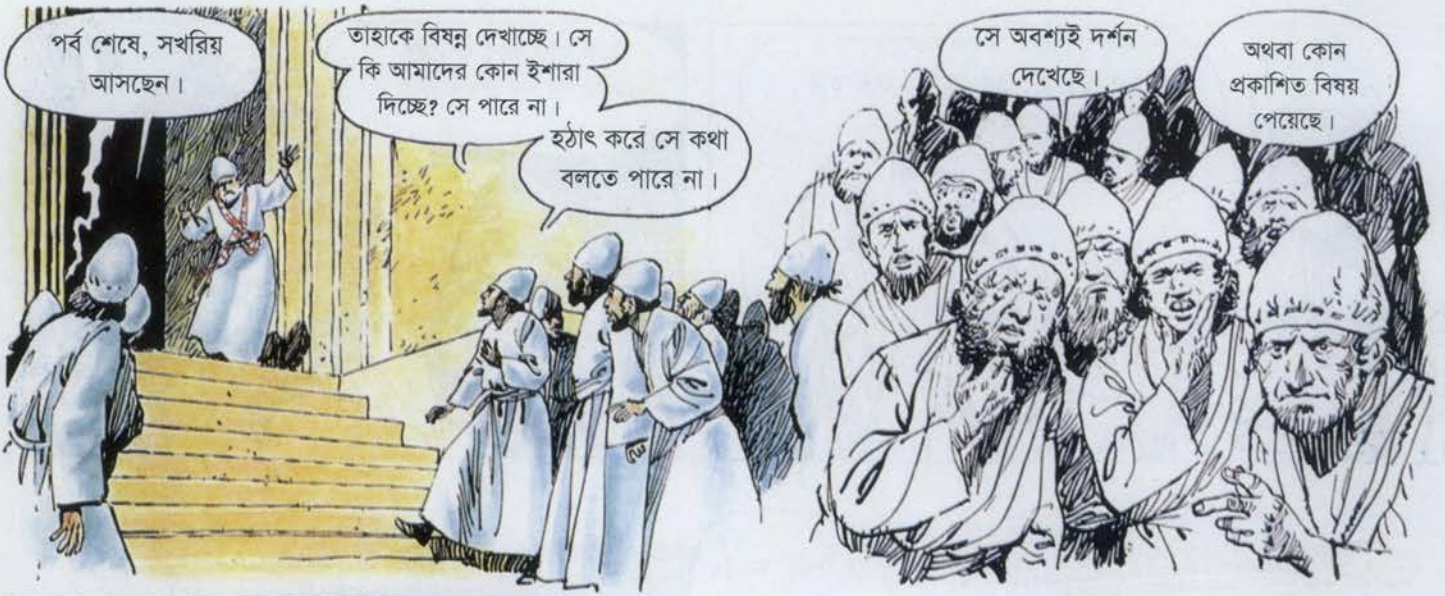 পর্ব শেষে, সখরিয়
আসছেন।
তাহাকে বিষন্ন দেখাচ্ছে। সে
কি আমাদের কোন ইশারা
দিচ্ছে? সে পারে না।
হঠাৎ করে সে কথা
বলতে পারে না।
সে অবশ্যই দর্শন
দেখেছে।
অথবা কোন
প্রকাশিত বিষয়
পেয়েছে।